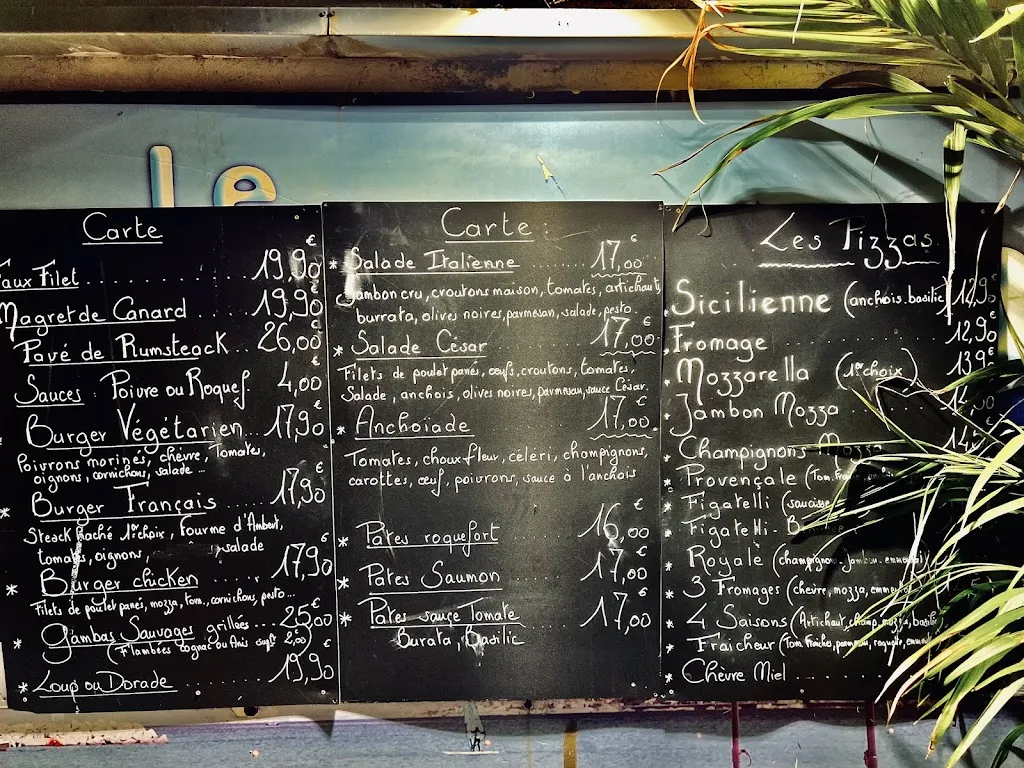 Le
Carte
Faux Filet 19,90 €
Magret de Canard 19,90 €
Pavé de Rumsteack.. 26,00 €
Sauces : Poivre ou Roquef. 4,00 €
Burger Végétarien... 17,90 €
Poivrons marinés, chèvre, tomates,
oignons, cornichons, salade ...
* Burger Français ..... 17,90 €
Steack haché 1er choix, Fourme d'Ambert,
tomates, oignons, salade
* Burger chicken ..... 17,90 €
Filets de poulet panés, mozza, tom., cornichons, pesto...
* Gambas Sauvages grillées ... 25,00 €
(Flambées cognac ou Anis supt 2,00)
* Loup ou Dorade ....... 19,90 €
Carte :
* Salade Italienne ....... 17,00 €
Jambon cru, croutons maison, tomates, artichauts,
burrata, olives noires, parmesan, salade, pesto.
* Salade César ....... 17,00 €
Filets de poulet panés, oeufs, croutons, tomates,
Salade, anchois, olives noires, parmesan, sauce César.
* Anchoiade ....... 17,00 €
Tomates, choux fleur, céléri, champignons,
carottes, oeuf, poivrons, sauce à l'anchois
* Pates roquefort ....... 16,00 €
* Pates Saumon ....... 17,00 €
* Pates sauce Tomate ....... 17,00 €
Burata, Basilic
Les Pizzas
* Sicilienne (anchois. basilic) 12,90
* Fromage ....... 12,90
* Mozzarella (1er choix) 13
* Jambon Mozza .......
* Champignons Mozza 14
* Provençale (Tom.
* Figatelli (saucisse
* Figatelli.
* Royale (champignon, jambon, emmental)
* 3 Fromages (chèvre, mozza,
* 4 Saisons (Artichaut, champ, mozza, basilic
* Fraicheur (Tom fraiches,
* Chèvre Miel .......